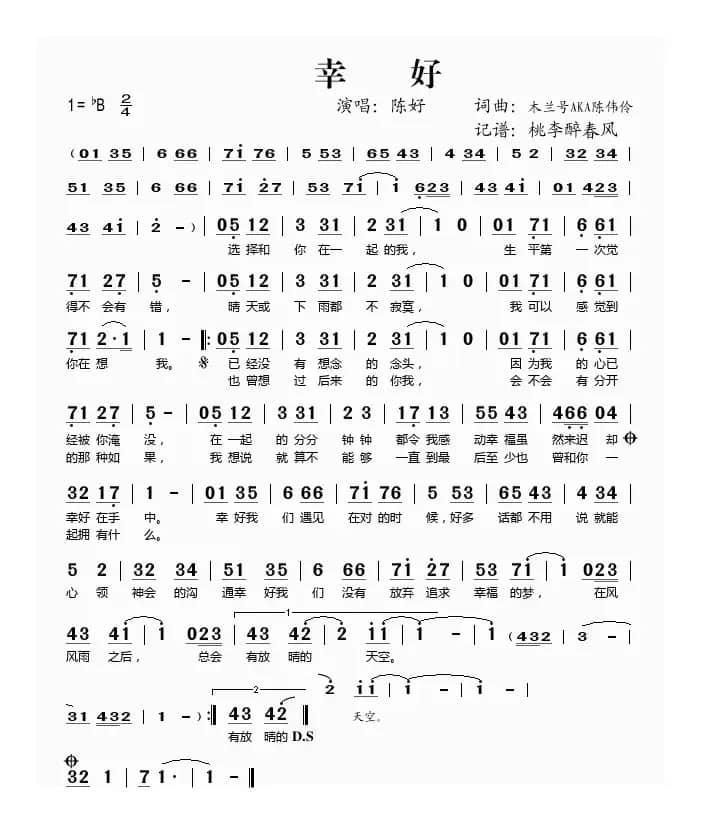 幸 好
1= ♭B 2/4 演唱：陈好 词曲：木兰号AKA陈伟伶
记谱：桃李醉春风
( 01 35 | 6 66 | 71 76 | 5 53 | 65 43 | 4 34 | 5 2 | 32 34 |
51 35 | 6 66 | 71 27 | 53 71 | 1 623 | 43 41 | 01 423 |
43 41 | 2 - ) | 05 12 | 3 31 | 2 31 | 1 0 | 01 71 | 6 61 |
选择和 你 在一 起的我， 生 平第 一 次觉
71 27 | 5 - | 05 12 | 3 31 | 2 31 | 1 0 | 01 71 | 6 61 |
得不 会有 错， 晴天或 下 雨都 不 寂寞， 我可以 感 觉到
71 2·1 | 1 - ‖: 05 12 | 3 31 | 2 31 | 1 0 | 01 71 | 6 61 |
你在 想 我。 𝄋 已经没 有 想念 的 念头， 因为我 的 心已
也曾想 过 后来 的 你我， 会不会 有 分开
71 27 | 5 - | 05 12 | 3 31 | 2 3 | 17 13 | 55 43 | 466 04 |
经被 你淹 没， 在一起 的 分分 钟 钟 都令 我感 动幸 福虽 然来迟 却 𝄌
的那 种如 果， 我想说 就 算不 能 够 一直 到最 后至 少也 曾和你 一
32 17 | 1 - | 01 35 | 6 66 | 71 76 | 5 53 | 65 43 | 4 34 |
幸好 在手 中。 幸 好我 们 遇见 在对 的时 候，好多 话都 不用 说 就能
起拥 有什 么。
5 2 | 32 34 | 51 35 | 6 66 | 71 27 | 53 71 | 1 023 |
心 领 神会 的沟 通幸 好我 们 没有 放弃 追求 幸福 的梦， 在风
1
43 41 | 1 023 | 43 42 | 2 11 | 1 - | 1 (432 | 3 - |
风雨 之后， 总会 有放 晴的 天空。
2 2 11 | 1 - | 1 - |
31 432 | 1 - ) :‖ 43 42 ‖ 天空。
有放 晴的 D.S
𝄌
32 1 | 71· | 1 - ‖